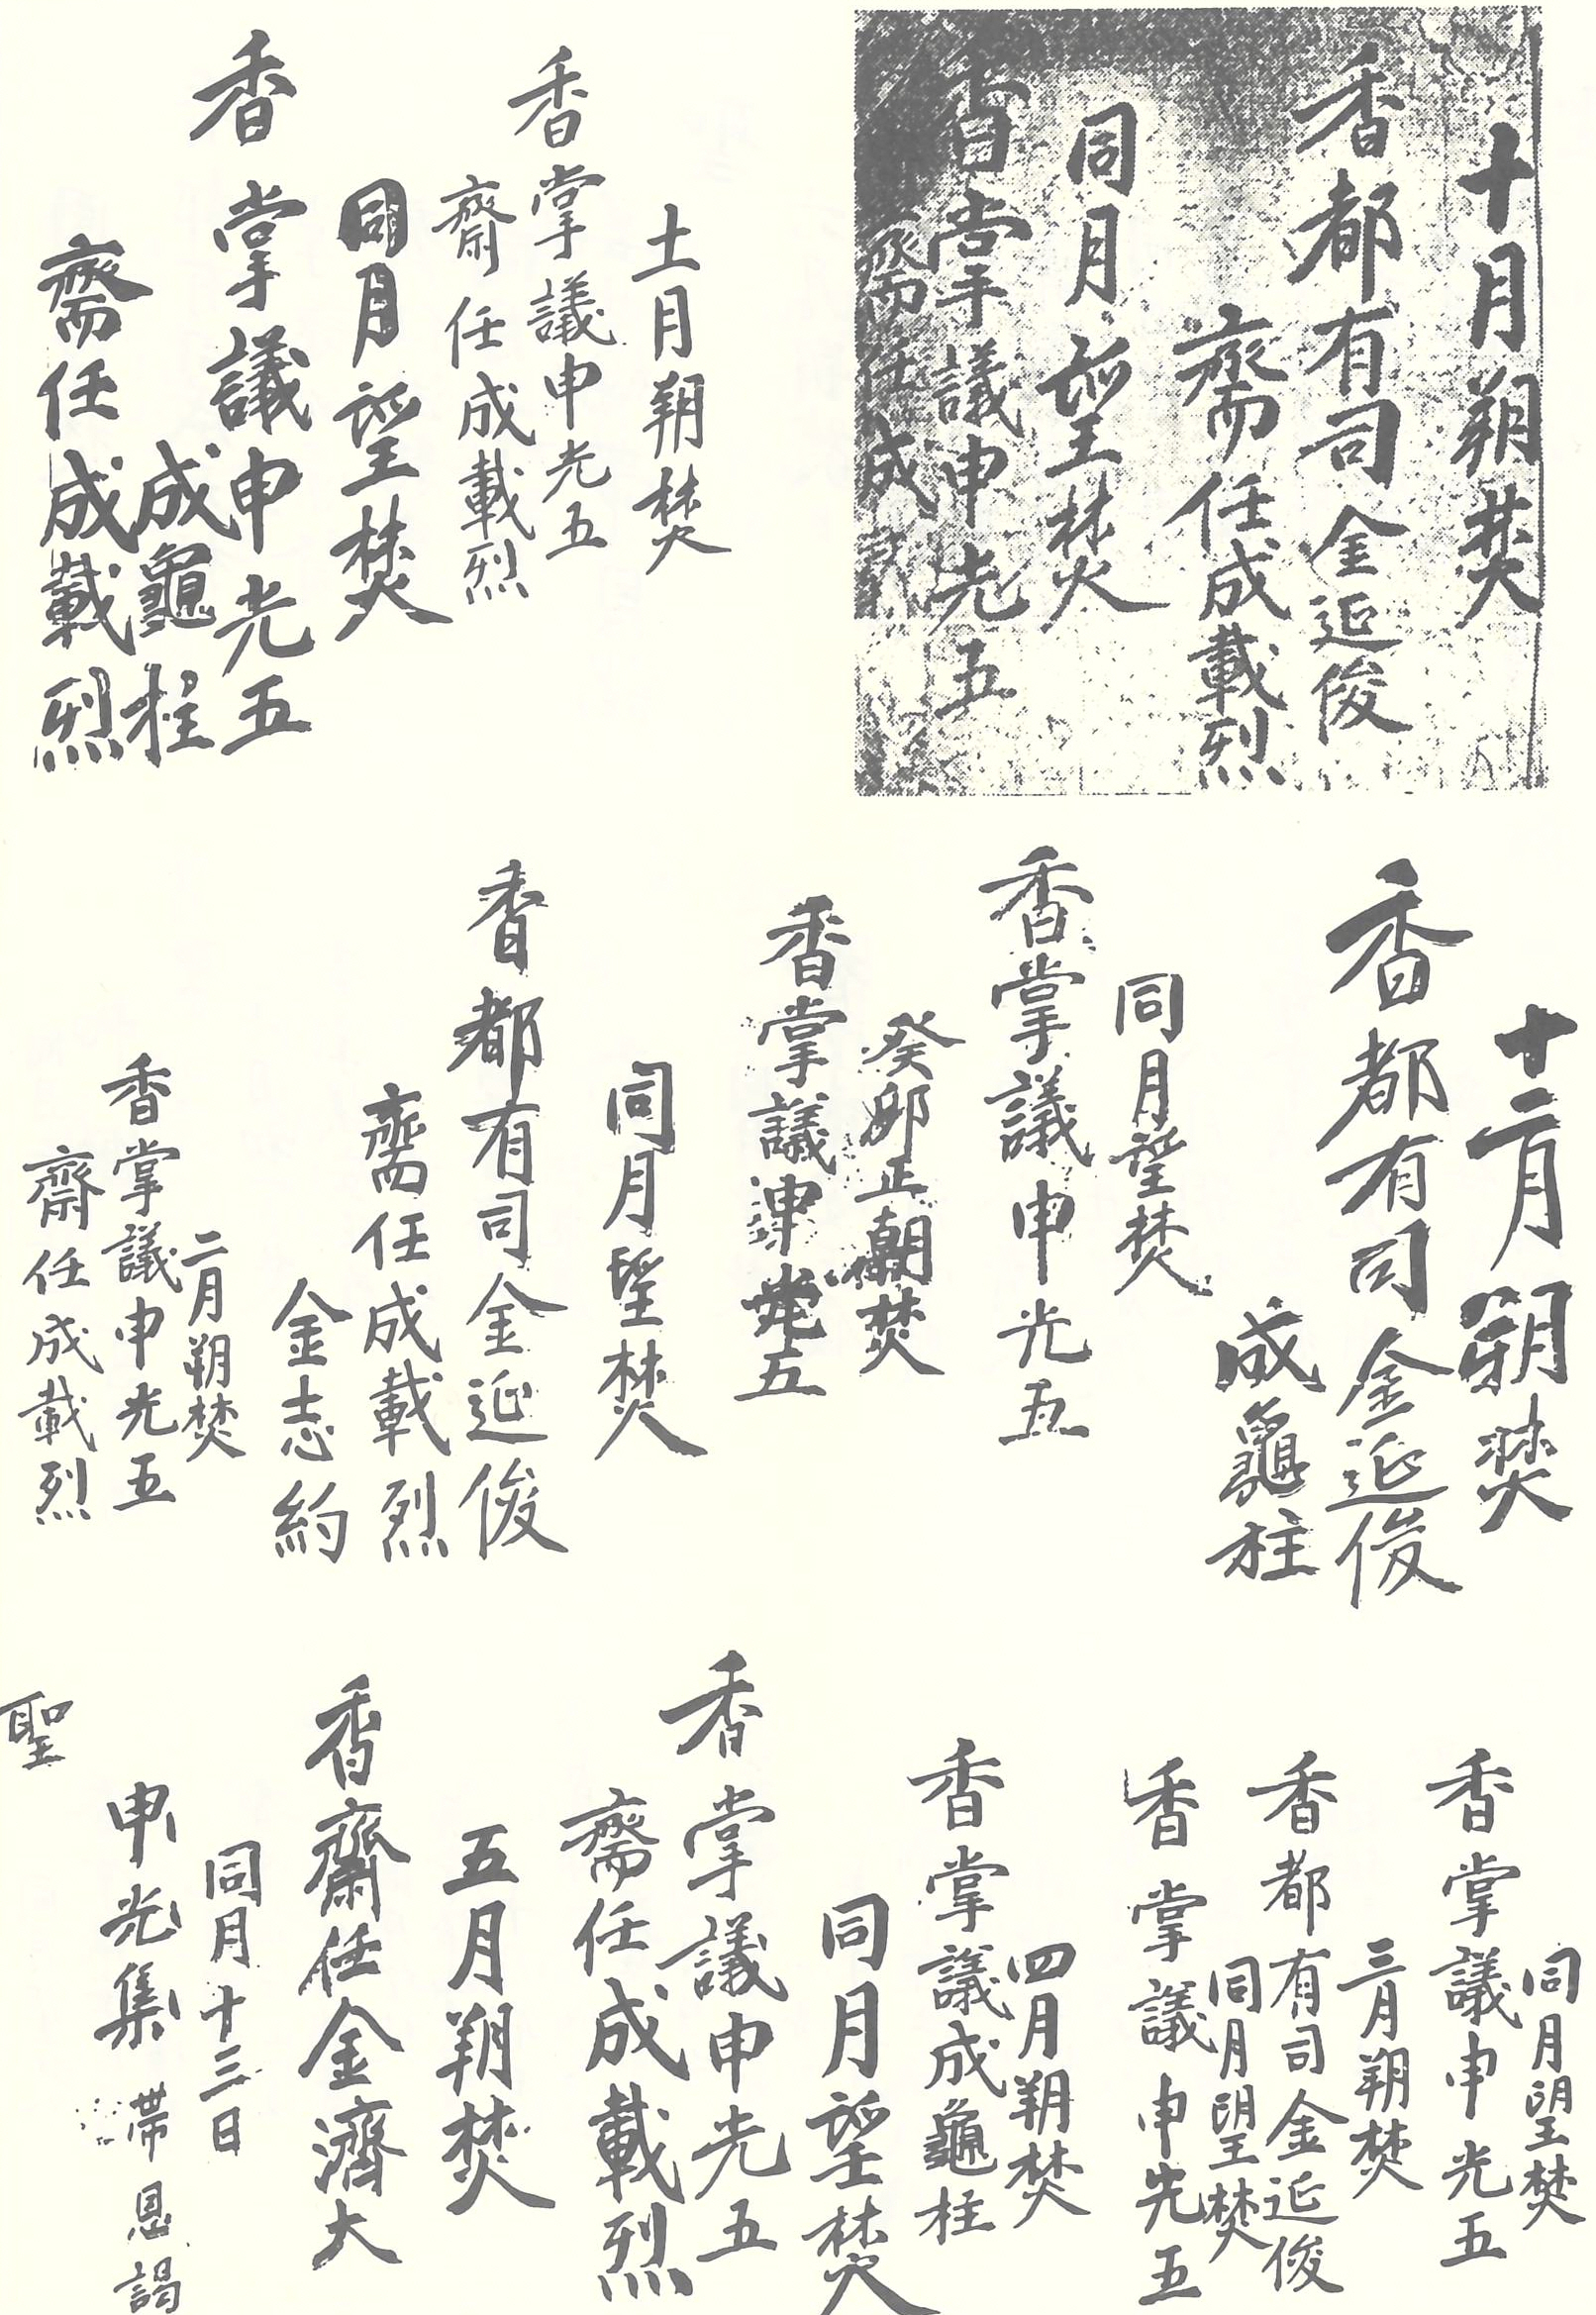 十月朔焚
香都有司金延俊
齋任成載烈
同月望焚
香掌議申光五
齋任成載
十一月朔焚
香掌議申光五
齋任成載烈
同月望焚
香掌議申光五
成龜柱
齋任成載烈
十二月朔焚
香都有司金延俊
成龜柱
同月望焚
香掌議申光五
癸卯正朝焚
香掌議申光五
同月望焚
香都有司金延俊
齋任成載烈
金志約
二月朔焚
香掌議申光五
齋任成載烈
同月望焚
香掌議申光五
三月朔焚
香都有司金延俊
同月望焚
香掌議申光五
四月朔焚
香掌議成龜柱
同月望焚
香掌議申光五
齋任成載烈
五月朔焚
香齋任金濟大
同月十三日
申光集 帶恩謁
聖